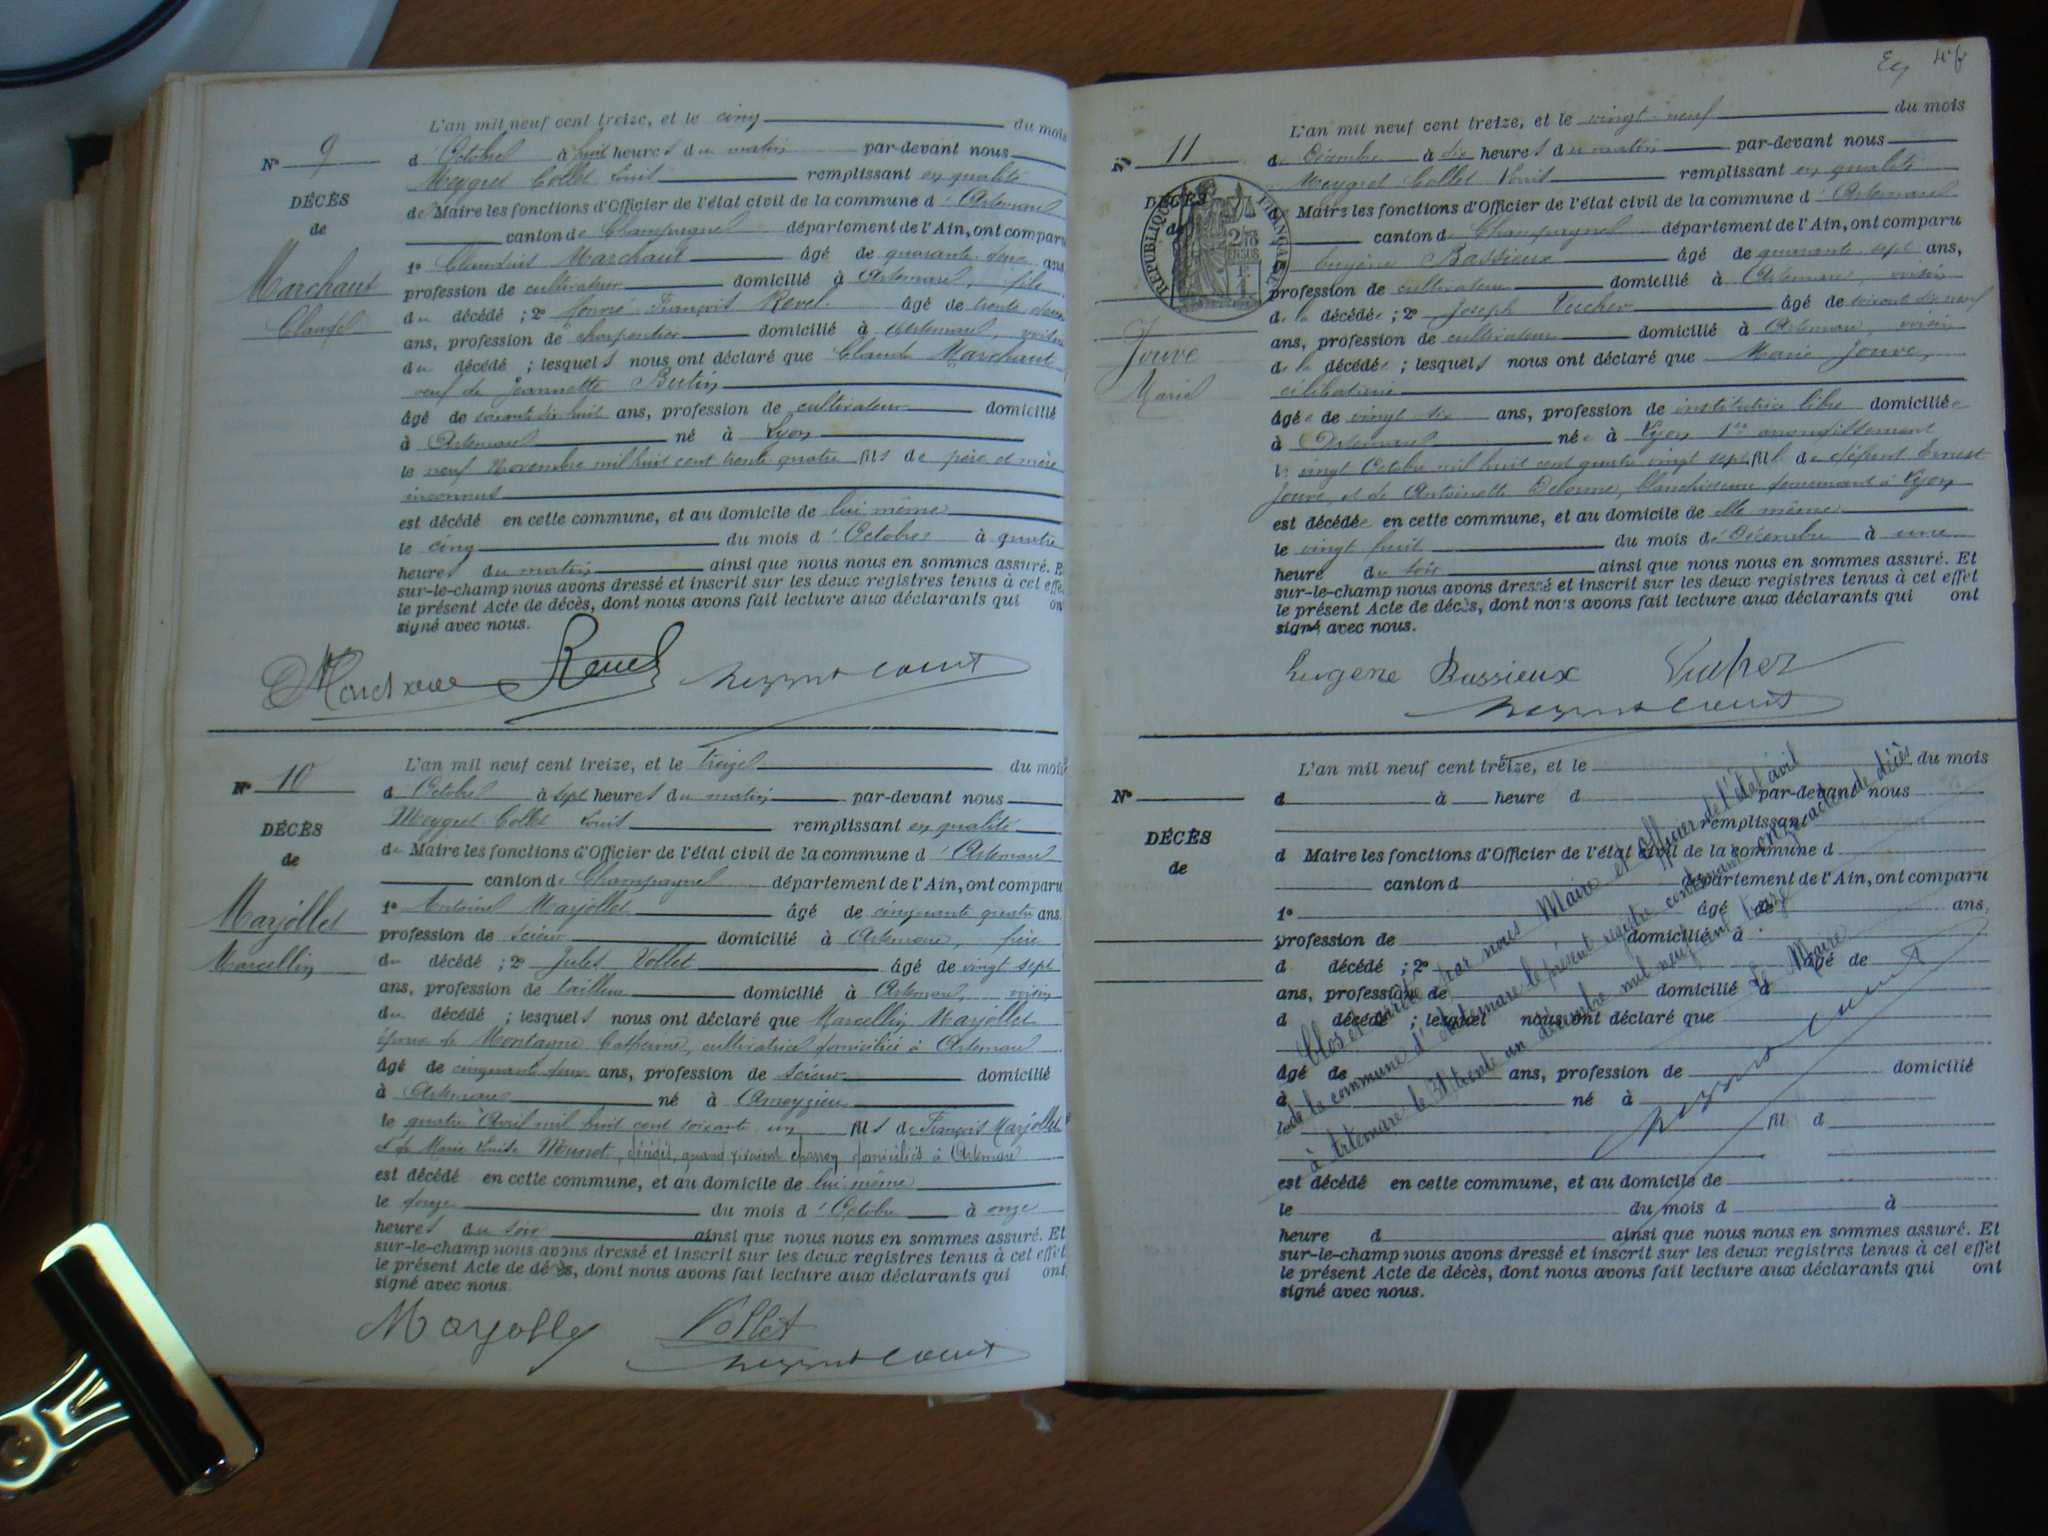 L'an mil neuf cent treize, et le cinq du mois
N° 9 d'Octobre à huit heures du matin par-devant nous
Meygret Collet Louis remplissant en qualité
DÉCÈS de Maire les fonctions d'Officier de l'état civil de la commune d'Artemare
de canton de Champagne département de l'Ain, ont comparu
1° Claudius Marchaut âgé de quarante deux ans
Marchaut profession de cultivateur domicilié à Artemare, fils
Claude du décédé ; 2° François Revel âgé de trente deux
ans, profession de charpentier domicilié à Artemare, voisin
du décédé ; lesquels nous ont déclaré que Claude Marchaut
veuf de Jeannette Butin
âgé de soixante dix huit ans, profession de cultivateur domicilié
à Artemare né à Lyon
le neuf Novembre mil huit cent trente quatre fils de père et mère
inconnus
est décédé en cette commune, et au domicile de lui même
le cinq du mois d'Octobre à quatre
heures du matin ainsi que nous nous en sommes assuré. Et
sur-le-champ nous avons dressé et inscrit sur les deux registres tenus à cet effet
le présent Acte de décès, dont nous avons fait lecture aux déclarants qui ont
signé avec nous.
Revel
L'an mil neuf cent treize, et le treize du mois
N° 10 d'Octobre à sept heures du matin par-devant nous
Meygret Collet Louis remplissant en qualité
DÉCÈS de Maire les fonctions d'Officier de l'état civil de la commune d'Artemare
de canton de Champagne département de l'Ain, ont comparu
1° Antoine Marjollet âgé de cinquante quatre ans
Marjollet profession de scieur domicilié à Artemare, frère
Marcellin du décédé ; 2° Jules Vollet âgé de vingt sept
ans, profession de tailleur domicilié à Artemare, voisin
du décédé ; lesquels nous ont déclaré que Marcellin Marjollet
époux de Montagne Catherine, cultivatrice domiciliée à Artemare
âgé de cinquante deux ans, profession de scieur domicilié
à Artemare né à Ameyzieu
le quatre Avril mil huit cent soixante un fils de François Marjollet
et de Marie Louise Munet, décédés, quand vivaient domiciliés à Artemare
est décédé en cette commune, et au domicile de lui même
le douze du mois d'Octobre à onze
heures du soir ainsi que nous nous en sommes assuré. Et
sur-le-champ nous avons dressé et inscrit sur les deux registres tenus à cet effet
le présent Acte de décès, dont nous avons fait lecture aux déclarants qui ont
signé avec nous.
Marjollet Vollet
L'an mil neuf cent treize, et le vingt-neuf du mois
N° 11 de Décembre à dix heures du matin par-devant nous
Meygret Collet Louis remplissant en qualité
DÉCÈS de Maire les fonctions d'Officier de l'état civil de la commune d'Artemare
de canton de Champagne département de l'Ain, ont comparu
RÉPUBLIQUE FRANÇAISE
1° Eugène Bassieux âgé de quarante sept ans,
profession de cultivateur domicilié à Artemare, voisin
de la décédée ; 2° Joseph Vucher âgé de soixante dix neuf
Jouve ans, profession de cultivateur domicilié à Artemare, voisin
de la décédée ; lesquels nous ont déclaré que Marie Jouve,
Marie célibataire
âgée de vingt six ans, profession de institutrice libre domiciliée
à Artemare née à Lyon 1er arrondissement
le vingt Octobre mil huit cent quatre vingt sept fille de défunt Ernest
Jouve, et de Antoinette Delorme, blanchisseuse demeurant à Lyon
est décédée en cette commune, et au domicile de elle même
le vingt huit du mois de Décembre à une
heure du soir ainsi que nous nous en sommes assuré. Et
sur-le-champ nous avons dressé et inscrit sur les deux registres tenus à cet effet
le présent Acte de décès, dont nous avons fait lecture aux déclarants qui ont
signé avec nous.
Eugene Bassieux Vucher
L'an mil neuf cent treize, et le du mois
N° d à heure d par-devant nous
remplissant
DÉCÈS d Maire les fonctions d'Officier de l'état civil de la commune d
de canton d département de l'Ain, ont comparu
1° âgé de ans,
profession de domicilié à
d décédé ; 2° âgé de
ans, profession de domicilié à
d décédé ; lesquel nous ont déclaré que
âgé de ans, profession de domicilié
à né à
le fil d
est décédé en cette commune, et au domicile de
le du mois d à
heure d ainsi que nous nous en sommes assuré. Et
sur-le-champ nous avons dressé et inscrit sur les deux registres tenus à cet effet
le présent Acte de décès, dont nous avons fait lecture aux déclarants qui ont
signé avec nous.
Clos et arrêté par nous Maire et Officier de l'état civil
de la commune d'Artemare le présent registre contenant onze actes de décès
à Artemare le 31 trente un décembre mil neuf cent treize.
Le Maire